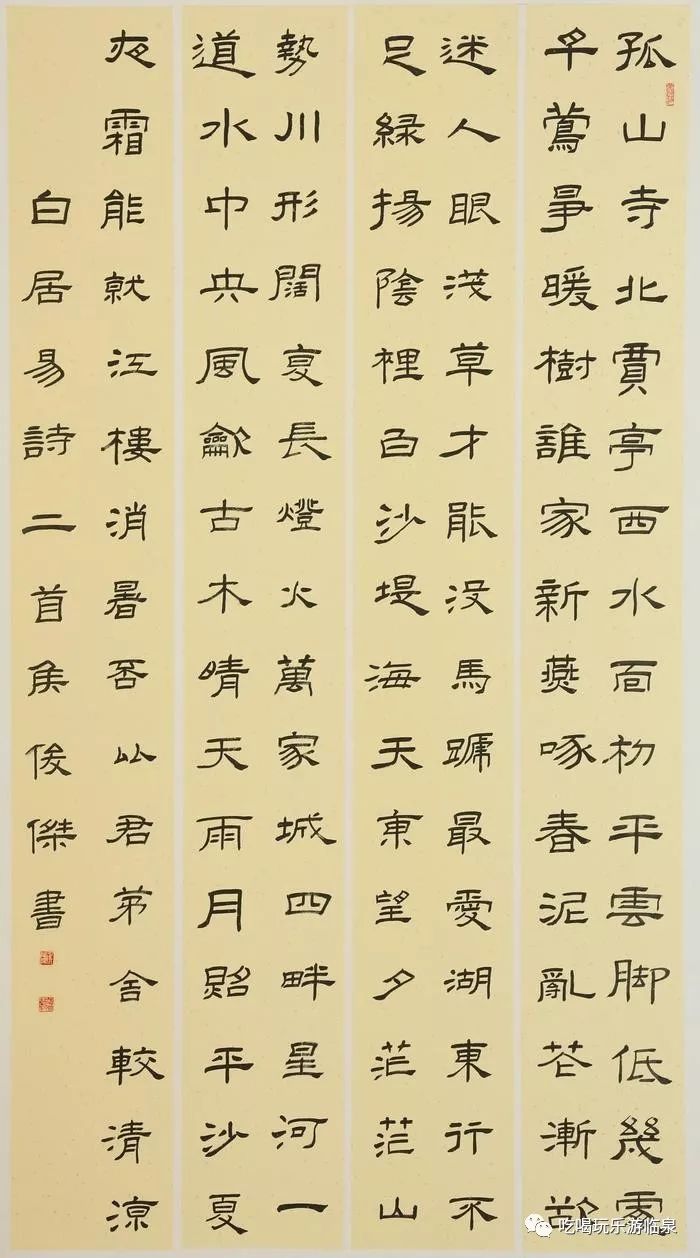 孤山寺北賈亭西水面初平雲脚低幾處
早鶯爭暖樹誰家新燕啄春泥亂花漸欲
迷人眼淺草才能沒馬蹄最愛湖東行不
足緑揚陰裡白沙堤海天東望夕茫茫山
勢川形闊复長燈火萬家城四畔星河一
道水中央風龡古木晴天雨月照平沙夏
夜霜能就江樓消暑否比君茅舍較清涼
白居易詩二首侯俊傑書
吃喝玩乐游临泉